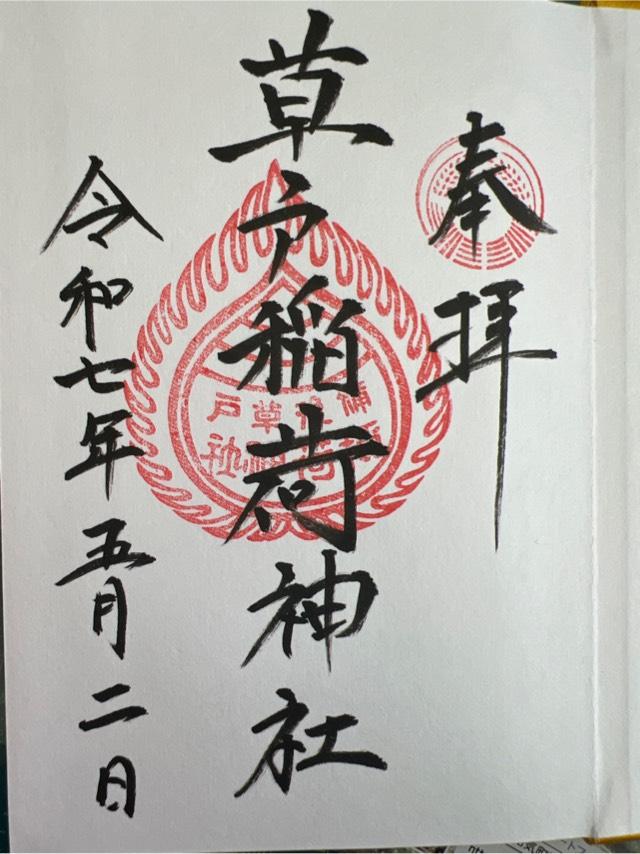 奉拝
草戸稲荷神社
令和七年五月二日
草戸